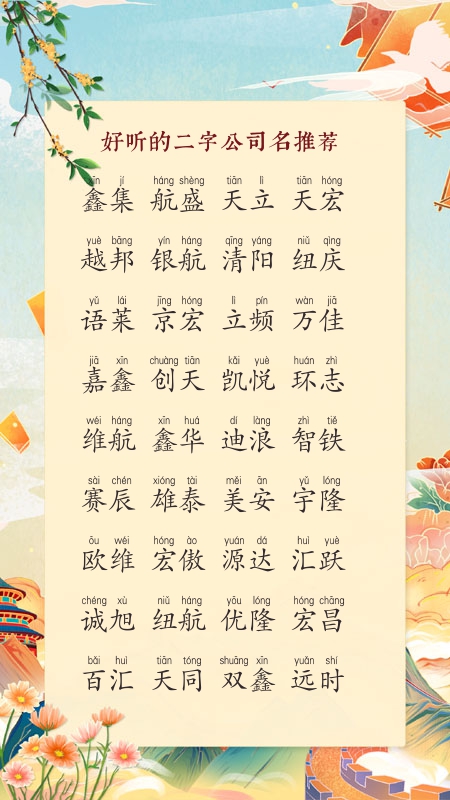 好听的二字公司名推荐
xīn jí háng shèng tiān lì tiān hóng
鑫集 航盛 天立 天宏
yuè bāng yín háng qīng yáng niǔ qìng
越邦 银航 清阳 纽庆
yǔ lái jīng hóng lì pín wàn jiā
语莱 京宏 立频 万佳
jiā xīn chuàng tiān kǎi yuè huán zhì
嘉鑫 创天 凯悦 环志
wéi háng xīn huá dí làng zhì tiě
维航 鑫华 迪浪 智铁
sài chén xióng tài měi ān yǔ lóng
赛辰 雄泰 美安 宇隆
ōu wéi hóng ào yuán dá huì yuè
欧维 宏傲 源达 汇跃
chéng xù niǔ háng yōu lóng hóng chāng
诚旭 纽航 优隆 宏昌
bǎi huì tiān tóng shuāng xīn yuǎn shí
百汇 天同 双鑫 远时